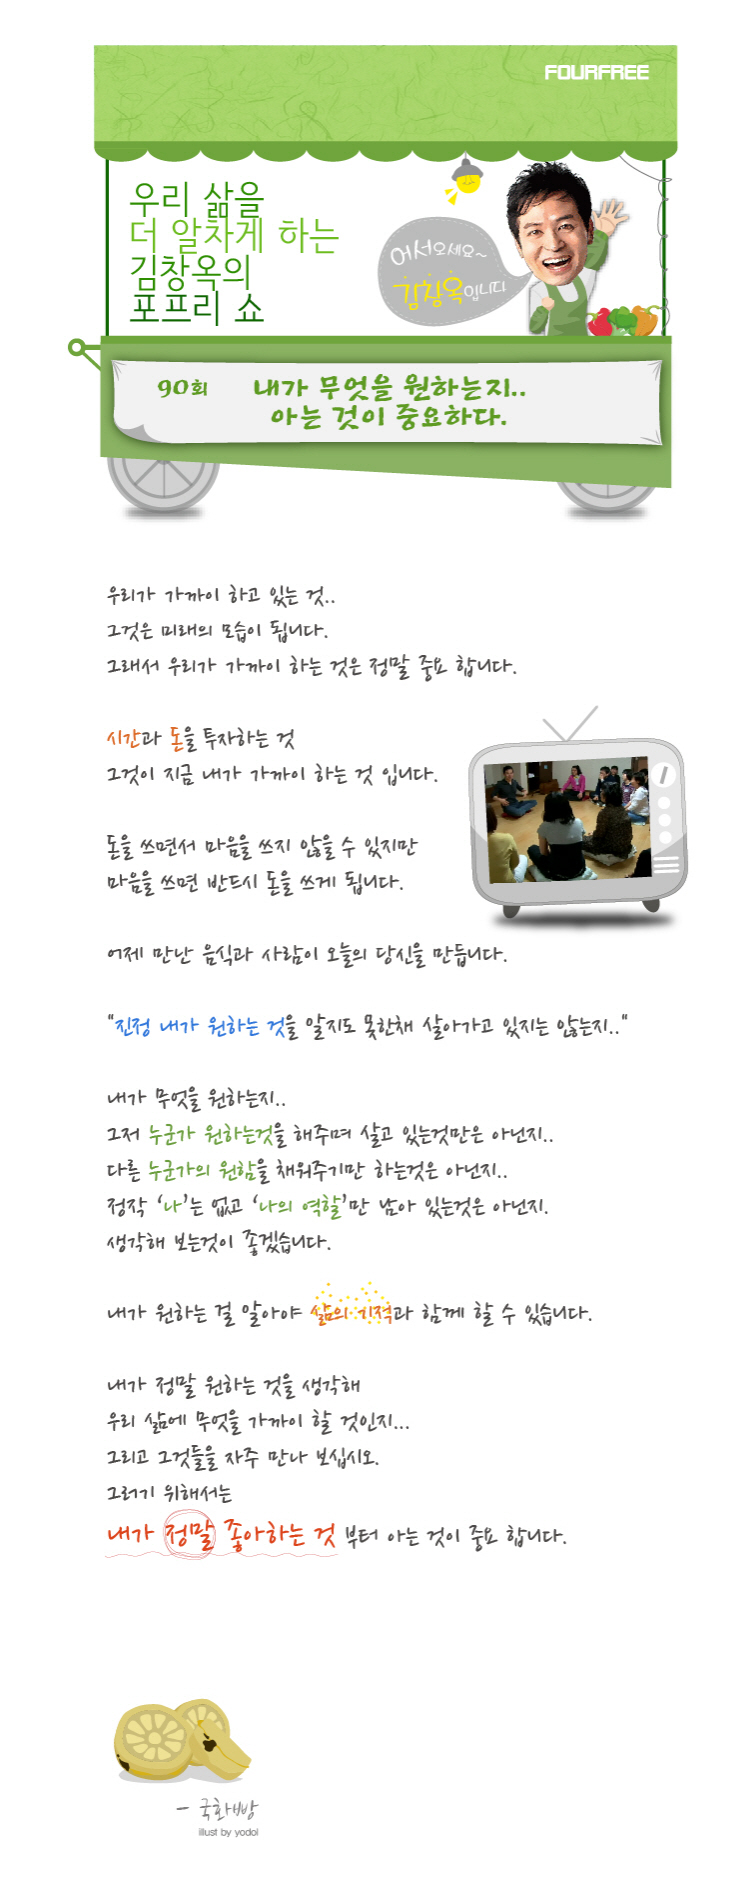 FOURFREE
우리 삶을
더 알차게 하는
김창옥의
포프리 쇼
어서오세요~
김창옥입니다
90회 내가 무엇을 원하는지..
아는 것이 중요하다.
우리가 가까이 하고 있는 것..
그것은 미래의 모습이 됩니다.
그래서 우리가 가까이 하는 것은 정말 중요 합니다.
시간과 돈을 투자하는 것
그것이 지금 내가 가까이 하는 것 입니다.
돈을 쓰면서 마음을 쓰지 않을 수 있지만
마음을 쓰면 반드시 돈을 쓰게 됩니다.
어제 만난 음식과 사람이 오늘의 당신을 만듭니다.
"진정 내가 원하는 것을 알지도 못한채 살아가고 있지는 않는지.."
내가 무엇을 원하는지..
그저 누군가 원하는것을 해주며 살고 있는것만은 아닌지..
다른 누군가의 원함을 채워주기만 하는것은 아닌지..
정작 ‘나’는 없고 ‘나의 역할’만 남아 있는것은 아닌지.
생각해 보는것이 좋겠습니다.
내가 원하는 걸 알아야 삶의 기적과 함께 할 수 있습니다.
내가 정말 원하는 것을 생각해
우리 삶에 무엇을 가까이 할 것인지...
그리고 그것들을 자주 만나 보십시오.
그러기 위해서는
내가 정말 좋아하는 것 부터 아는 것이 중요 합니다.
- 국화빵
illust by yodol